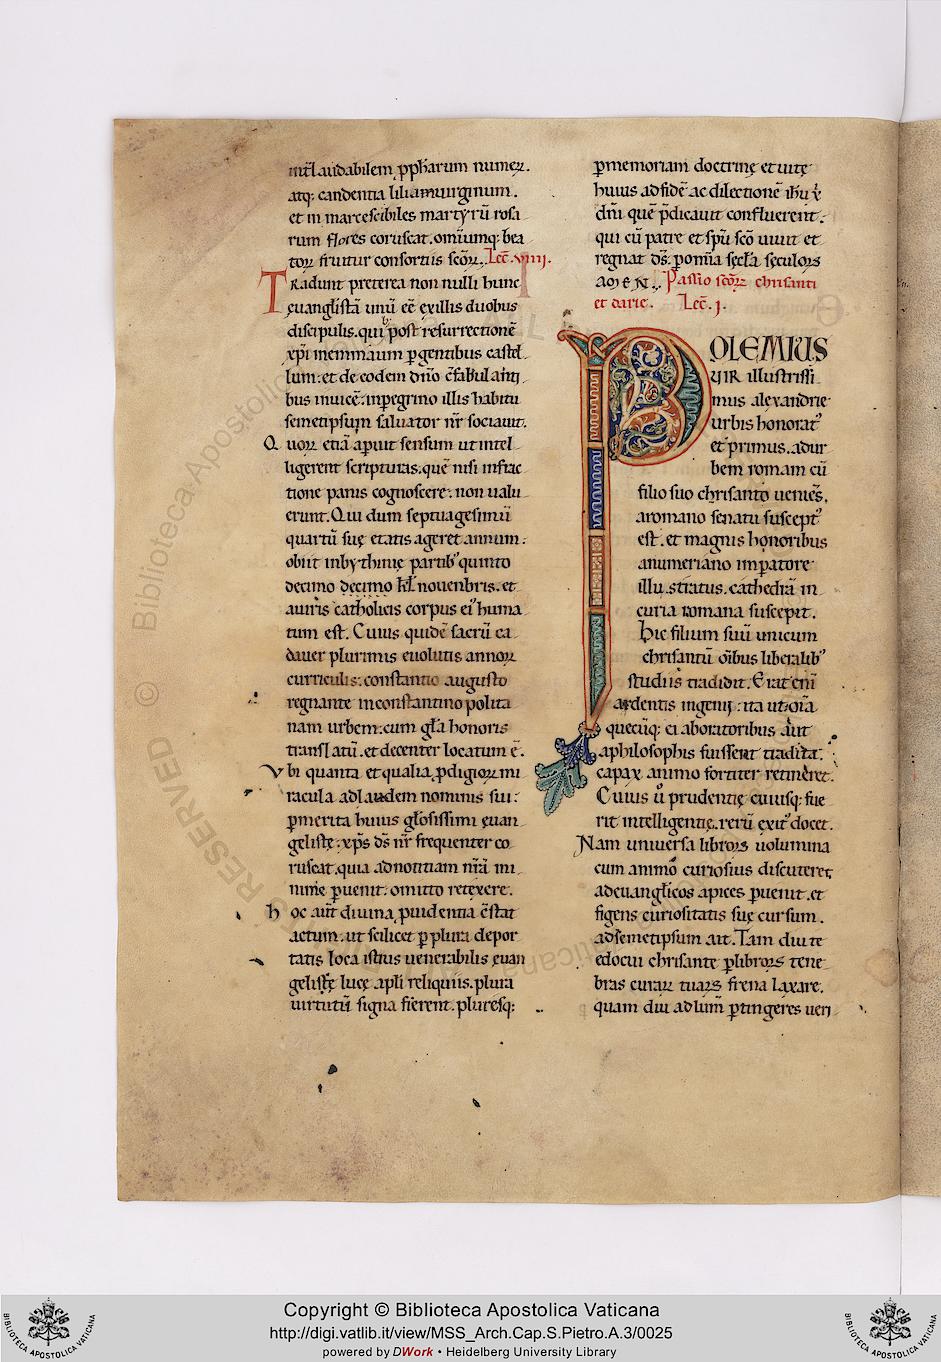 int̄ laudabilem ꝓph̄arum numeꝝ.
atq; candentia lilia uirginum.
et in marcescibiles martyrū rosa
rum flores coruscat. omiūmq; bea
toꝝ fruitur consortiis sc̄oꝝ. Lec̄. viiii.
Tradunt preterea non nulli hunc
ęuanglistā unū eē ex illis duobus
discipulis. quib; post resurrectionē
xp̄i inemmaum ꝑgentibus castel
lum: et de eodem dn̄o c̄fabulanti
bus inuicē: inperegrino illis habitu
semetipsum saluator nr̄ sociauit.
Quoꝝ etiā aꝑuit sensum ut intel
ligerent scripturas. quē nisi infrac
tione panis cognoscere: non ualu
erunt. Qui dum septuagesimū
quartū suę etatis ageret annum:
obiit inbythinię partib' quinto
decimo decimo kl̄ nouenbris. et
auiris catholicis corpus ei' huma
tum est. Cuius quidē sacrū ca
dauer plurimis euolutis annoꝝ
curriculis: constantio augusto
regnante inconstantinopolita
nam urbem: cum gl̄a honoris
translatū. et decenter locatum ē.
Vbi quanta et qualia ꝓdigioꝝ mi
racula adlaudem nominis sui:
ꝑmerita huius glo͞sissimi ęuan
gelistę: xp̄s ds̄ nr̄ frequenter co
ruscat. quia adnotitiam nr̄ā mi
nime ꝑuenit: omitto retexere.
hoc aūt diuina ꝓuidentia c̄stat
actum: ut scilicet ꝑplura depor
tatis loca istius uenerabilis ęuan
gelistę lucę apl̄i reliquiis. plura
uirtutū signa fierent. pluresq;
ꝑmemoriam doctrinę et uitę
huius adfidē ac dilectionē ih̄u xp̄i
dn̄i quē p̄dicauit confluerent:
qui cū patre et sp̄u sc̄o uiuit et
regnat ds̄. ꝑom̄ia sęcl̄a sęculoꝝ
amen. Passio sc̄oꝝ chrisanti
et darie. Lec̄. i.
POLEMIUS
VIR illustrissi
mus alexandrie
urbis honorat'
et primus. adur
bem romam cū
filio suo chrisanto ueniēs,
aromano senatu suscept'
est. et magnis honoribus
anumeriano imꝑatore
illustratus. cathedrā in
curia romana suscepit.
Hic filium suū unicum
chrisantū oībus liberalib'
studiis tradidit. Erat enī
ardentis ingenij: ita ut oīa
quecūq; ei aboratoribus aūt
aphilosophis fuissent tradita.
capax animo fortiter retineret.
Cuius ū prudentię cuiusq; fue
rit intelligentię. rerū exit' docet.
Nam uniuersa libroꝝ uolumina
cum animo curiosius discuteret,
adeuangl̄icos apices ꝑuenit. et
figens curiositatis suę cursum.
adsemetipsum ait. Tam diu te
edocui chrisante ꝑlibroꝝ tene
bras curaꝝ tuaꝝ frena laxare.
quam diu adlum̄ ꝑtingeres ueri
Copyright © Biblioteca Apostolica Vaticana
http://digi.vatlib.it/view/MSS_Arch.Cap.S.Pietro.A.3/0025
powered by DWork • Heidelberg University Library
BIBLIOTECA APOSTOLICA VATICANA
BIBLIOTECA APOSTOLICA VATICANA